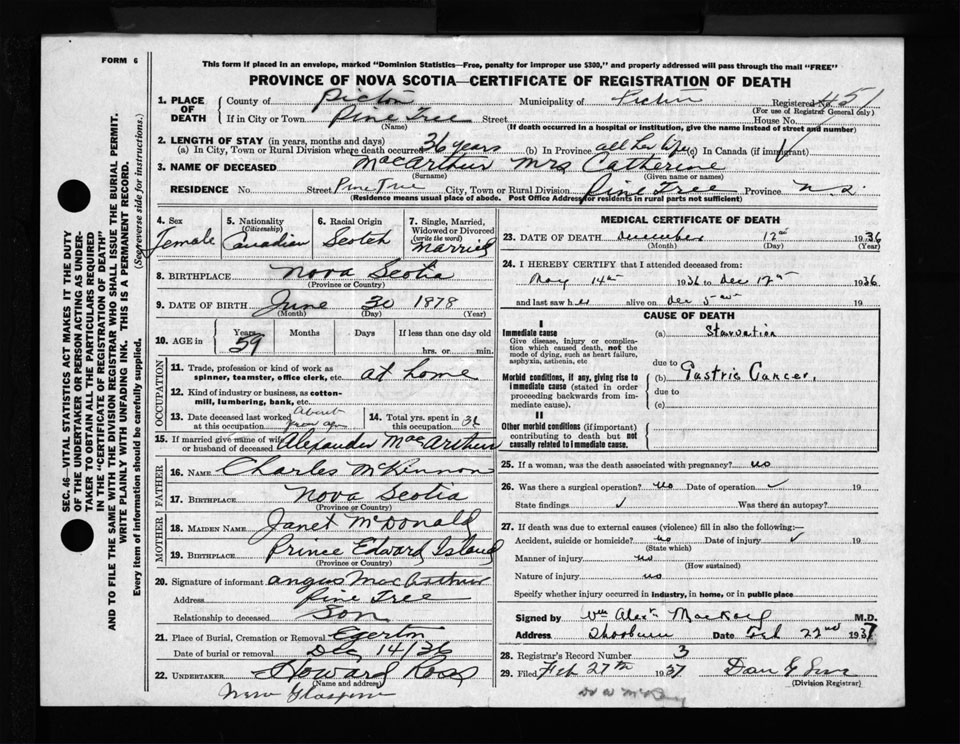 FORM 6
This form if placed in an envelope, marked "Dominion Statistics—Free, penalty for improper use $300," and properly addressed will pass through the mail "FREE"
PROVINCE OF NOVA SCOTIA—CERTIFICATE OF REGISTRATION OF DEATH
1. PLACE OF DEATH
County of Pictou Municipality of Pictou Registered No. 451
(For use of Registrar General only)
If in City or Town Pine Tree Street House No.
(Name) (If death occurred in a hospital or institution, give the name instead of street and number)
2. LENGTH OF STAY (in years, months and days)
(a) In City, Town or Rural Division where death occurred 36 years (b) In Province all her life (c) In Canada (if immigrant)
3. NAME OF DECEASED MacArthur Mrs Catherine
(Surname) (Given name or names)
RESIDENCE No. Street Pine Tree City, Town or Rural Division Pine Tree Province N.S.
(Residence means usual place of abode. Post Office Address for residents in rural parts not sufficient)
4. Sex Female
5. Nationality (Citizenship) Canadian
6. Racial Origin Scotch
7. Single, Married, Widowed or Divorced (write the word) Married
8. BIRTHPLACE Nova Scotia
(Province or Country)
9. DATE OF BIRTH June 30 1878
(Month) (Day) (Year)
10. AGE in Years 59 Months Days If less than one day old hrs. or min.
OCCUPATION
11. Trade, profession or kind of work as spinner, teamster, office clerk, etc. at home
12. Kind of industry or business, as cotton-mill, lumbering, bank, etc.
13. Date deceased last worked at this occupation About
14. Total yrs. spent in this occupation
15. If married give name of wife or husband of deceased Alexander MacArthur
FATHER
16. NAME Charles McKinnon
17. BIRTHPLACE Nova Scotia
(Province or Country)
MOTHER
18. MAIDEN NAME Janet McDonald
19. BIRTHPLACE Prince Edward Island
(Province or Country)
20. Signature of informant Angus MacArthur
Address Pine Tree
Relationship to deceased Son
21. Place of Burial, Cremation or Removal Egerton
Date of burial or removal Dec 14/36
22. UNDERTAKER Howard Ross
(Name and address)
New Glasgow
MEDICAL CERTIFICATE OF DEATH
23. DATE OF DEATH December 12th 1936
(Month) (Day) (Year)
24. I HEREBY CERTIFY that I attended deceased from:
May 14th 1936 to Dec 12th 1936
and last saw her alive on Dec 5th 19
CAUSE OF DEATH
I
Immediate cause
Give disease, injury or complication which caused death, not the mode of dying, such as heart failure, asphyxia, asthenia, etc
(a) Starvation
due to
Morbid conditions, if any, giving rise to immediate cause (stated in order proceeding backwards from immediate cause).
(b) Gastric Cancer,
due to
(c)
II
Other morbid conditions (if important) contributing to death but not causally related to immediate cause.
25. If a woman, was the death associated with pregnancy? no
26. Was there a surgical operation? no Date of operation 19
State findings Was there an autopsy?
27. If death was due to external causes (violence) fill in also the following:—
Accident, suicide or homicide? no Date of injury 19
(State which)
Manner of injury no
(How sustained)
Nature of injury no
Specify whether injury occurred in industry, in home, or in public place
Signed by Wm Alex MacKay M.D.
Address Date Feb 22nd 1937
28. Registrar's Record Number 3
29. Filed Feb 27th 1937
(Division Registrar)
SEC. 46—VITAL STATISTICS ACT MAKES IT THE DUTY OF THE UNDERTAKER OR PERSON ACTING AS UNDERTAKER TO OBTAIN ALL THE PARTICULARS REQUIRED IN THE "CERTIFICATE OF REGISTRATION OF DEATH" AND TO FILE THE SAME WITH THE DIVISION REGISTRAR WHO SHALL ISSUE THE BURIAL PERMIT.
WRITE PLAINLY WITH UNFADING INK. THIS IS A PERMANENT RECORD.
Every item of information should be carefully supplied. (See reverse side for instructions.)